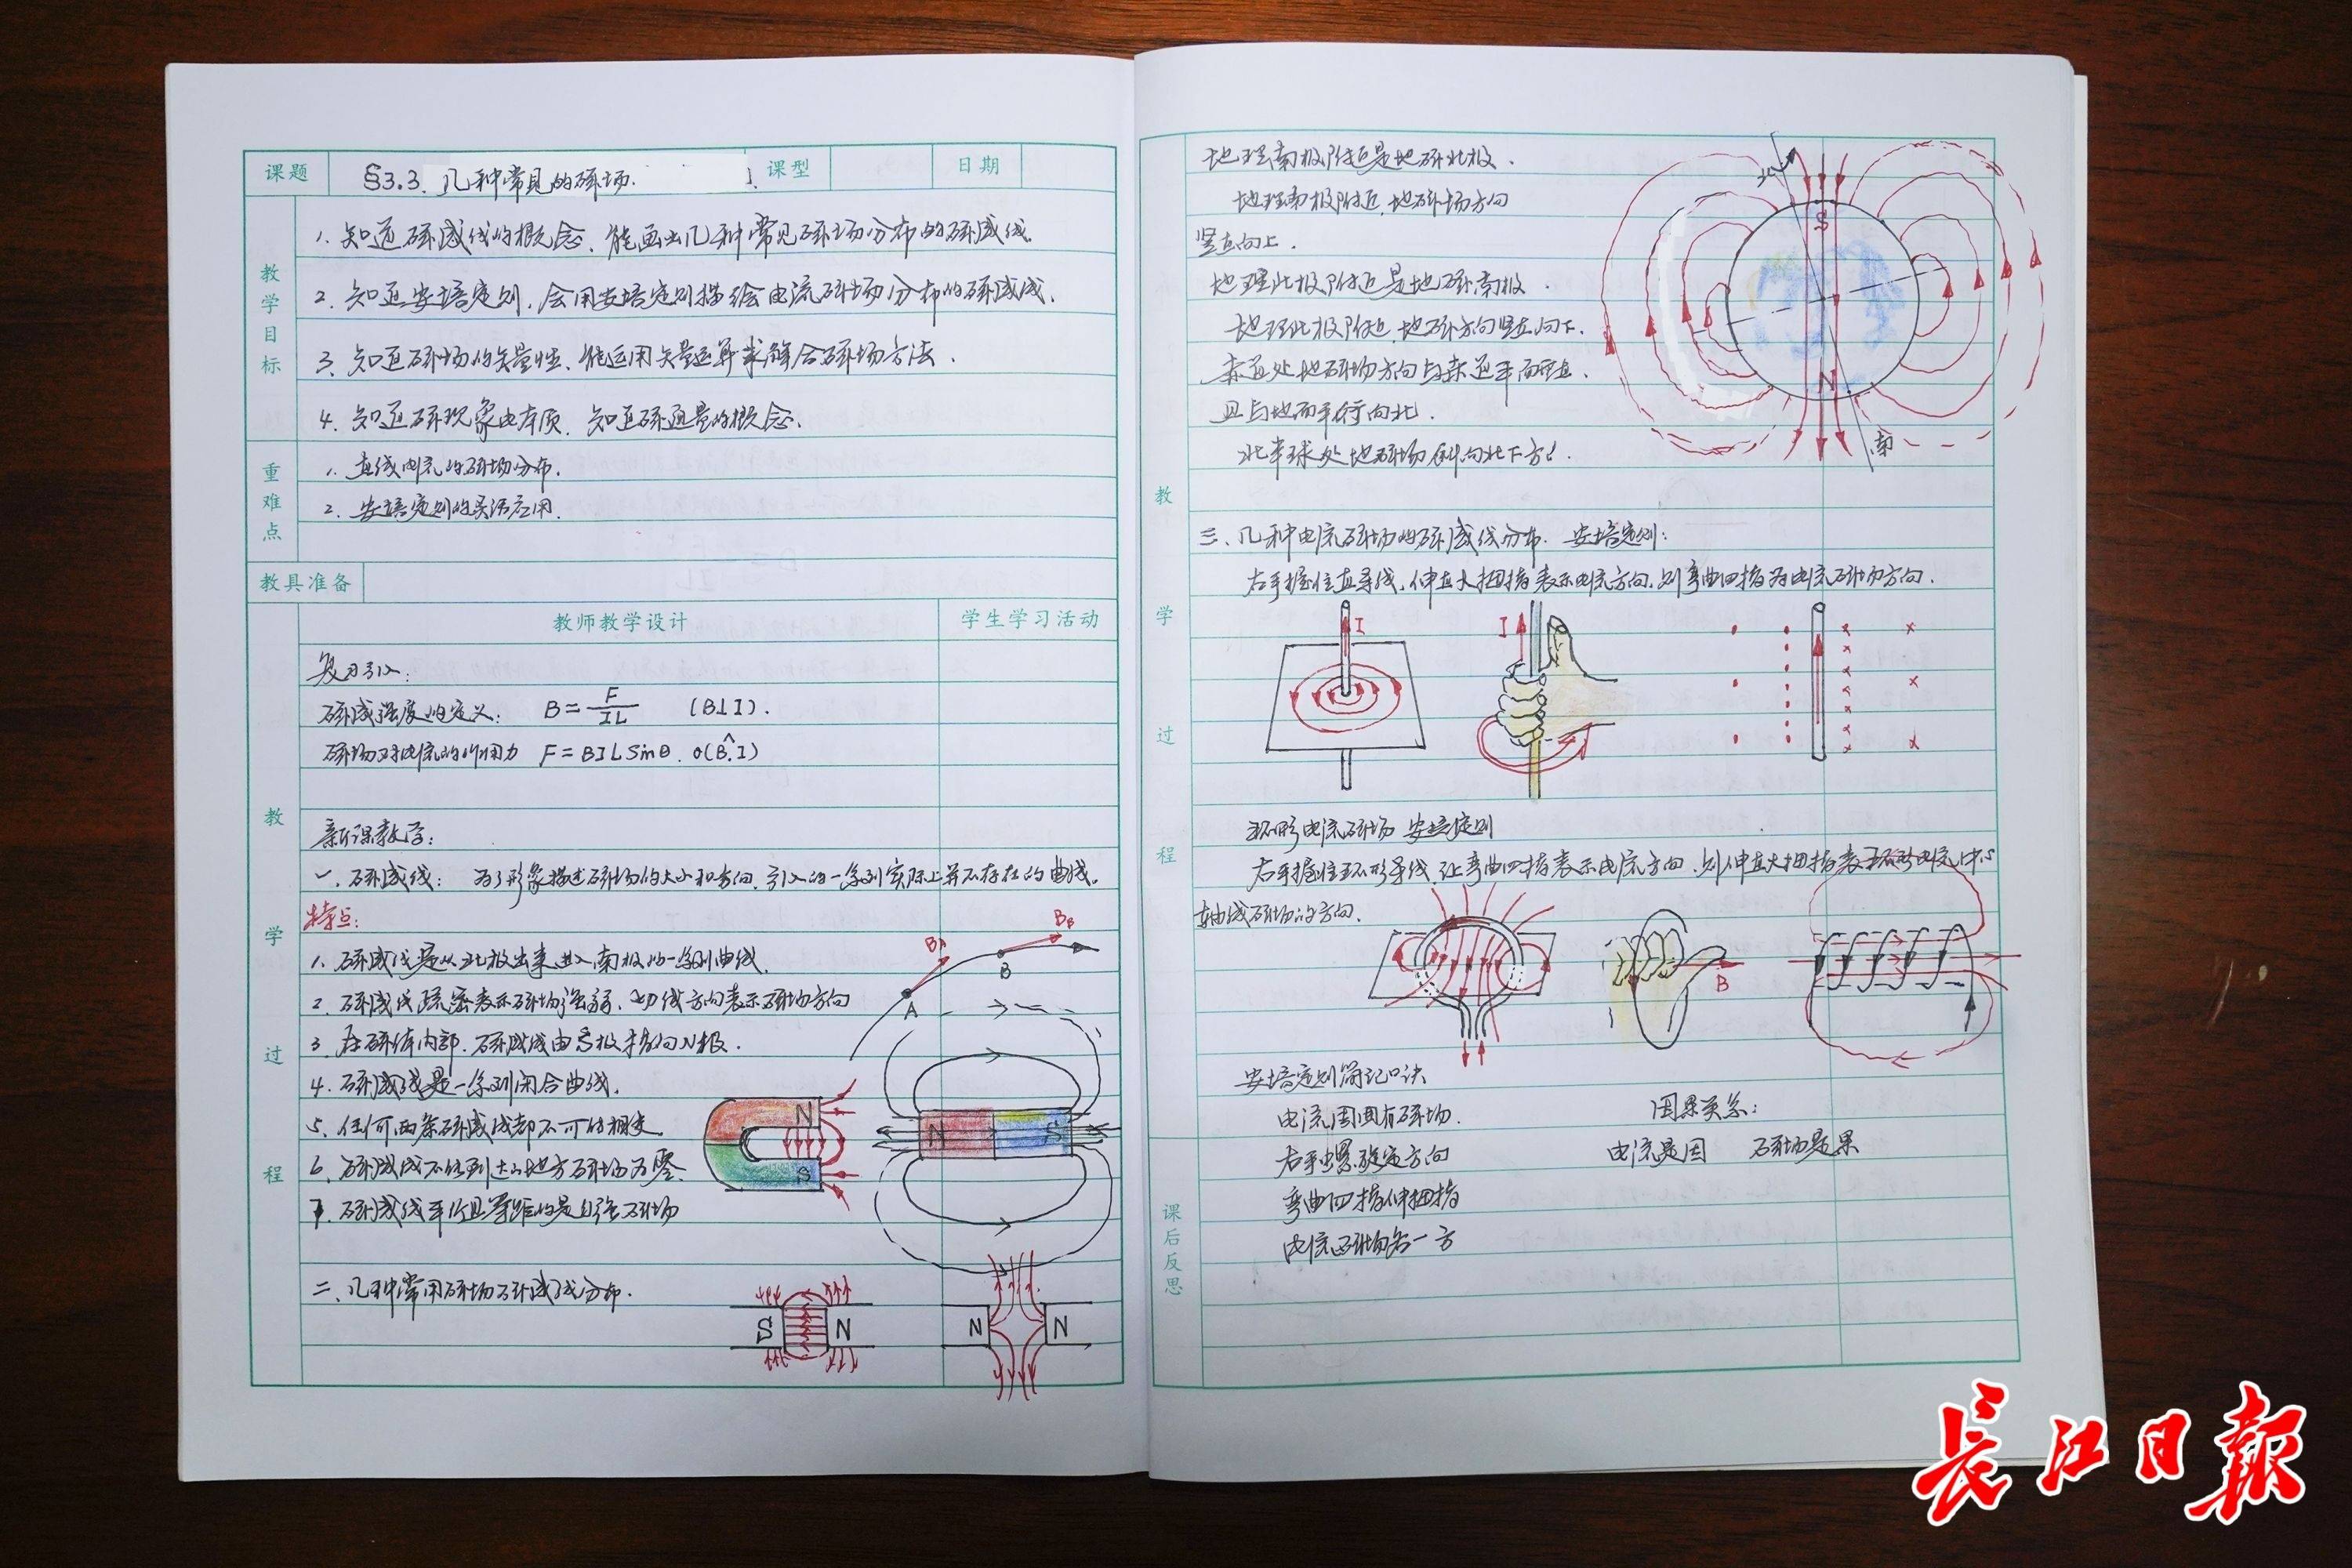 课题 §3.3. 几种常见的磁场. 课型 日期
教学目标
1. 知道磁感线的概念、能画出几种常见磁场分布的磁感线.
2. 知道安培定则，会用安培定则描绘电流磁场分布的磁感线.
3. 知道磁场的矢量性，能运用矢量运算求解合磁场方法.
4. 知道磁现象电本质. 知道磁通量的概念.
重难点
1. 直线电流的磁场分布.
2. 安培定则的灵活应用.
教具准备
教师教学设计 学生学习活动
教学过程
复习引入:
磁感强度的定义: B=F/IL (B⊥I).
磁场对电流的作用力 F=BILSinθ. θ(B^I)
新课教学:
一. 磁感线: 为了形象描述磁场的大小和方向，引入的一条列实际上并不存在的曲线.
特点:
1. 磁感线是从北极出来进入南极的一条列曲线.
2. 磁感线疏密表示磁场强弱、切线方向表示磁场方向
3. 在磁体内部. 磁感线由S极指向N极.
4. 磁感线是一条列闭合曲线.
5. 任何两条磁感线都不可能相交
6. 磁感线不能到达的地方磁场为零.
7. 磁感线平行且等距的是匀强磁场
A BA B BB
N S
N S
二、几种常用磁场磁感线分布.
S N
N N
地理南极附近是地磁北极.
地理南极附近，地磁场方向
竖直向上.
地理北极附近是地磁南极.
地理北极附近，地磁方向竖直向下.
赤道处地磁场方向与赤道平面垂直.
且与地面平行向北.
北半球处地磁场斜向北下方!.
北
S
N
南
教学过程
三. 几种电流磁场的磁感线分布. 安培定则:
右手握住直导线，伸直大拇指表示电流方向，则弯曲四指为电流磁场方向.
I
I
环形电流磁场 安培定则
右手握住环形导线，让弯曲四指表示电流方向，则伸直大拇指表示环形电流中心
轴线磁场的方向.
B
安培定则简记口诀
电流周围有磁场.
右手螺旋定方向
弯曲四指伸拇指
电流磁场各一方
因果关系:
电流是因 磁场是果
课后反思
长江日报